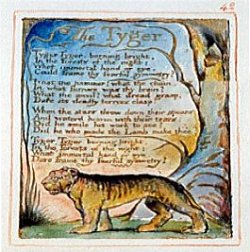 42
The Tyger
Tyger Tyger, burning bright,
In the forests of the night;
What immortal hand or eye,
Could frame thy fearful symmetry?
What the hammer? what the chain,
In what furnace was thy brain?
What the anvil? what dread grasp,
Dare its deadly terrors clasp!
When the stars threw down their spears
And water'd heaven with their tears:
Did he smile his work to see?
Did he who made the Lamb make thee?
Tyger Tyger burning bright,
In the forests of the night:
What immortal hand or eye,
Dare frame thy fearful symmetry?